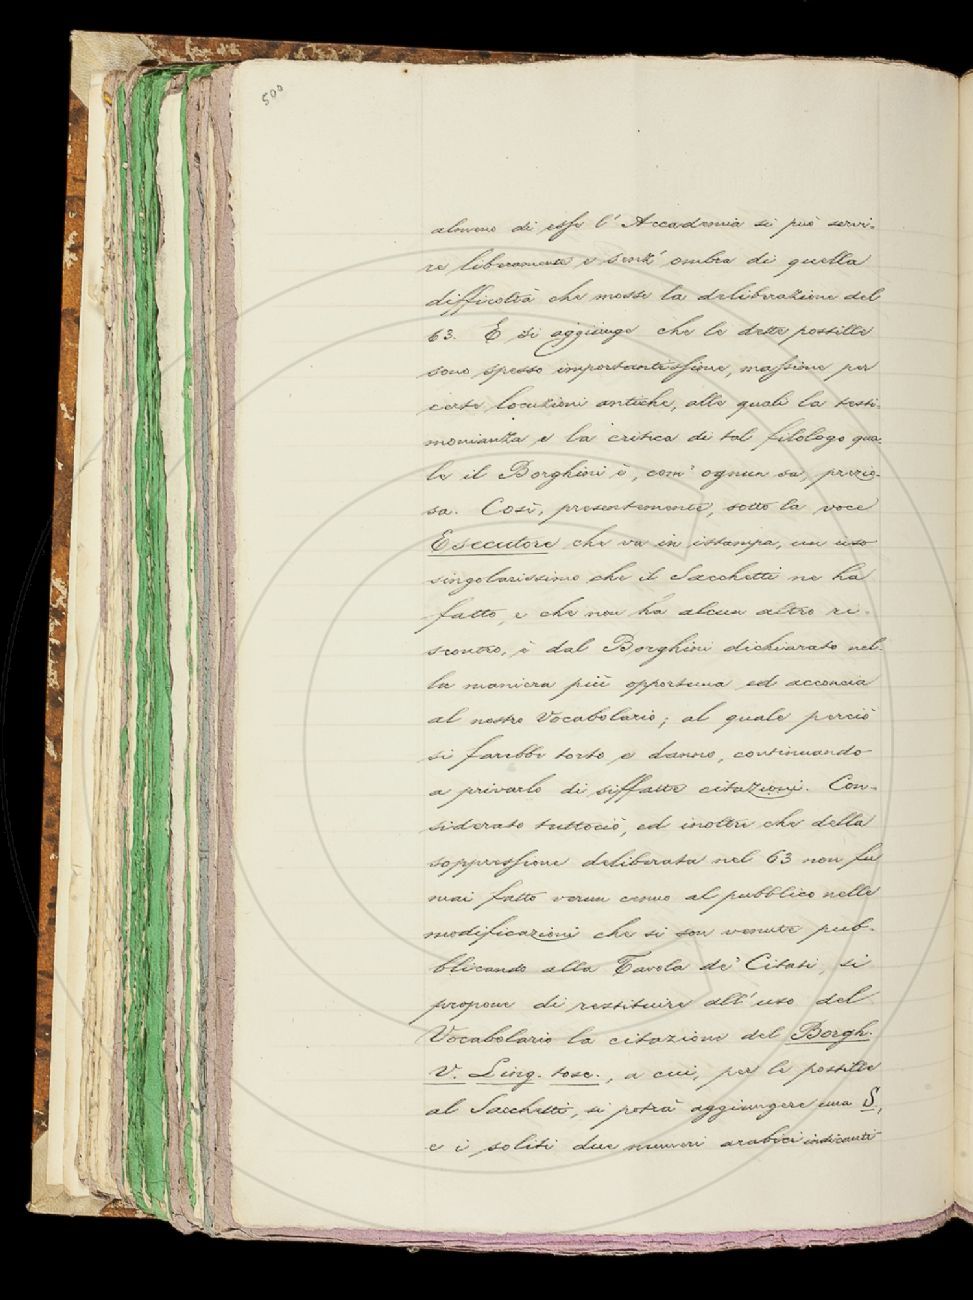 500
almeno di esse l'Accademia si può servi-
re liberamente e senz' ombra di quella
difficoltà che mosse la deliberazione del
63. E si aggiunge che le dette postille
sono spesso importantissime, massime per
certe locuzioni antiche, alle quali la testi-
monianza e la critica di tal filologo qua-
le il Borghini è, com' ognun sa, prezio-
sa. Così, presentemente, sotto la voce
Esecutore che va in istampa, un uso
singolarissimo che il Sacchetti ne ha
fatto, e che non ha alcun altro ri-
scontro, è dal Borghini dichiarato nel-
la maniera più opportuna ed acconcia
al nostro Vocabolario; al quale perciò
si farebbe torto e danno, continuando
a privarlo di siffatte citazioni. Con-
siderato tuttociò, ed inoltre che della
soppressione deliberata nel 63 non fu
mai fatto verun cenno al pubblico nelle
modificazioni che si son venute pub-
blicando alla Tavola de' Citati, si
propone di restituire all' uso del
Vocabolario la citazione del Borgh.
V. Ling. tosc., a cui, per le postille
al Sacchetti, si potrà aggiungere una S,
e i soliti due numeri arabici indicanti